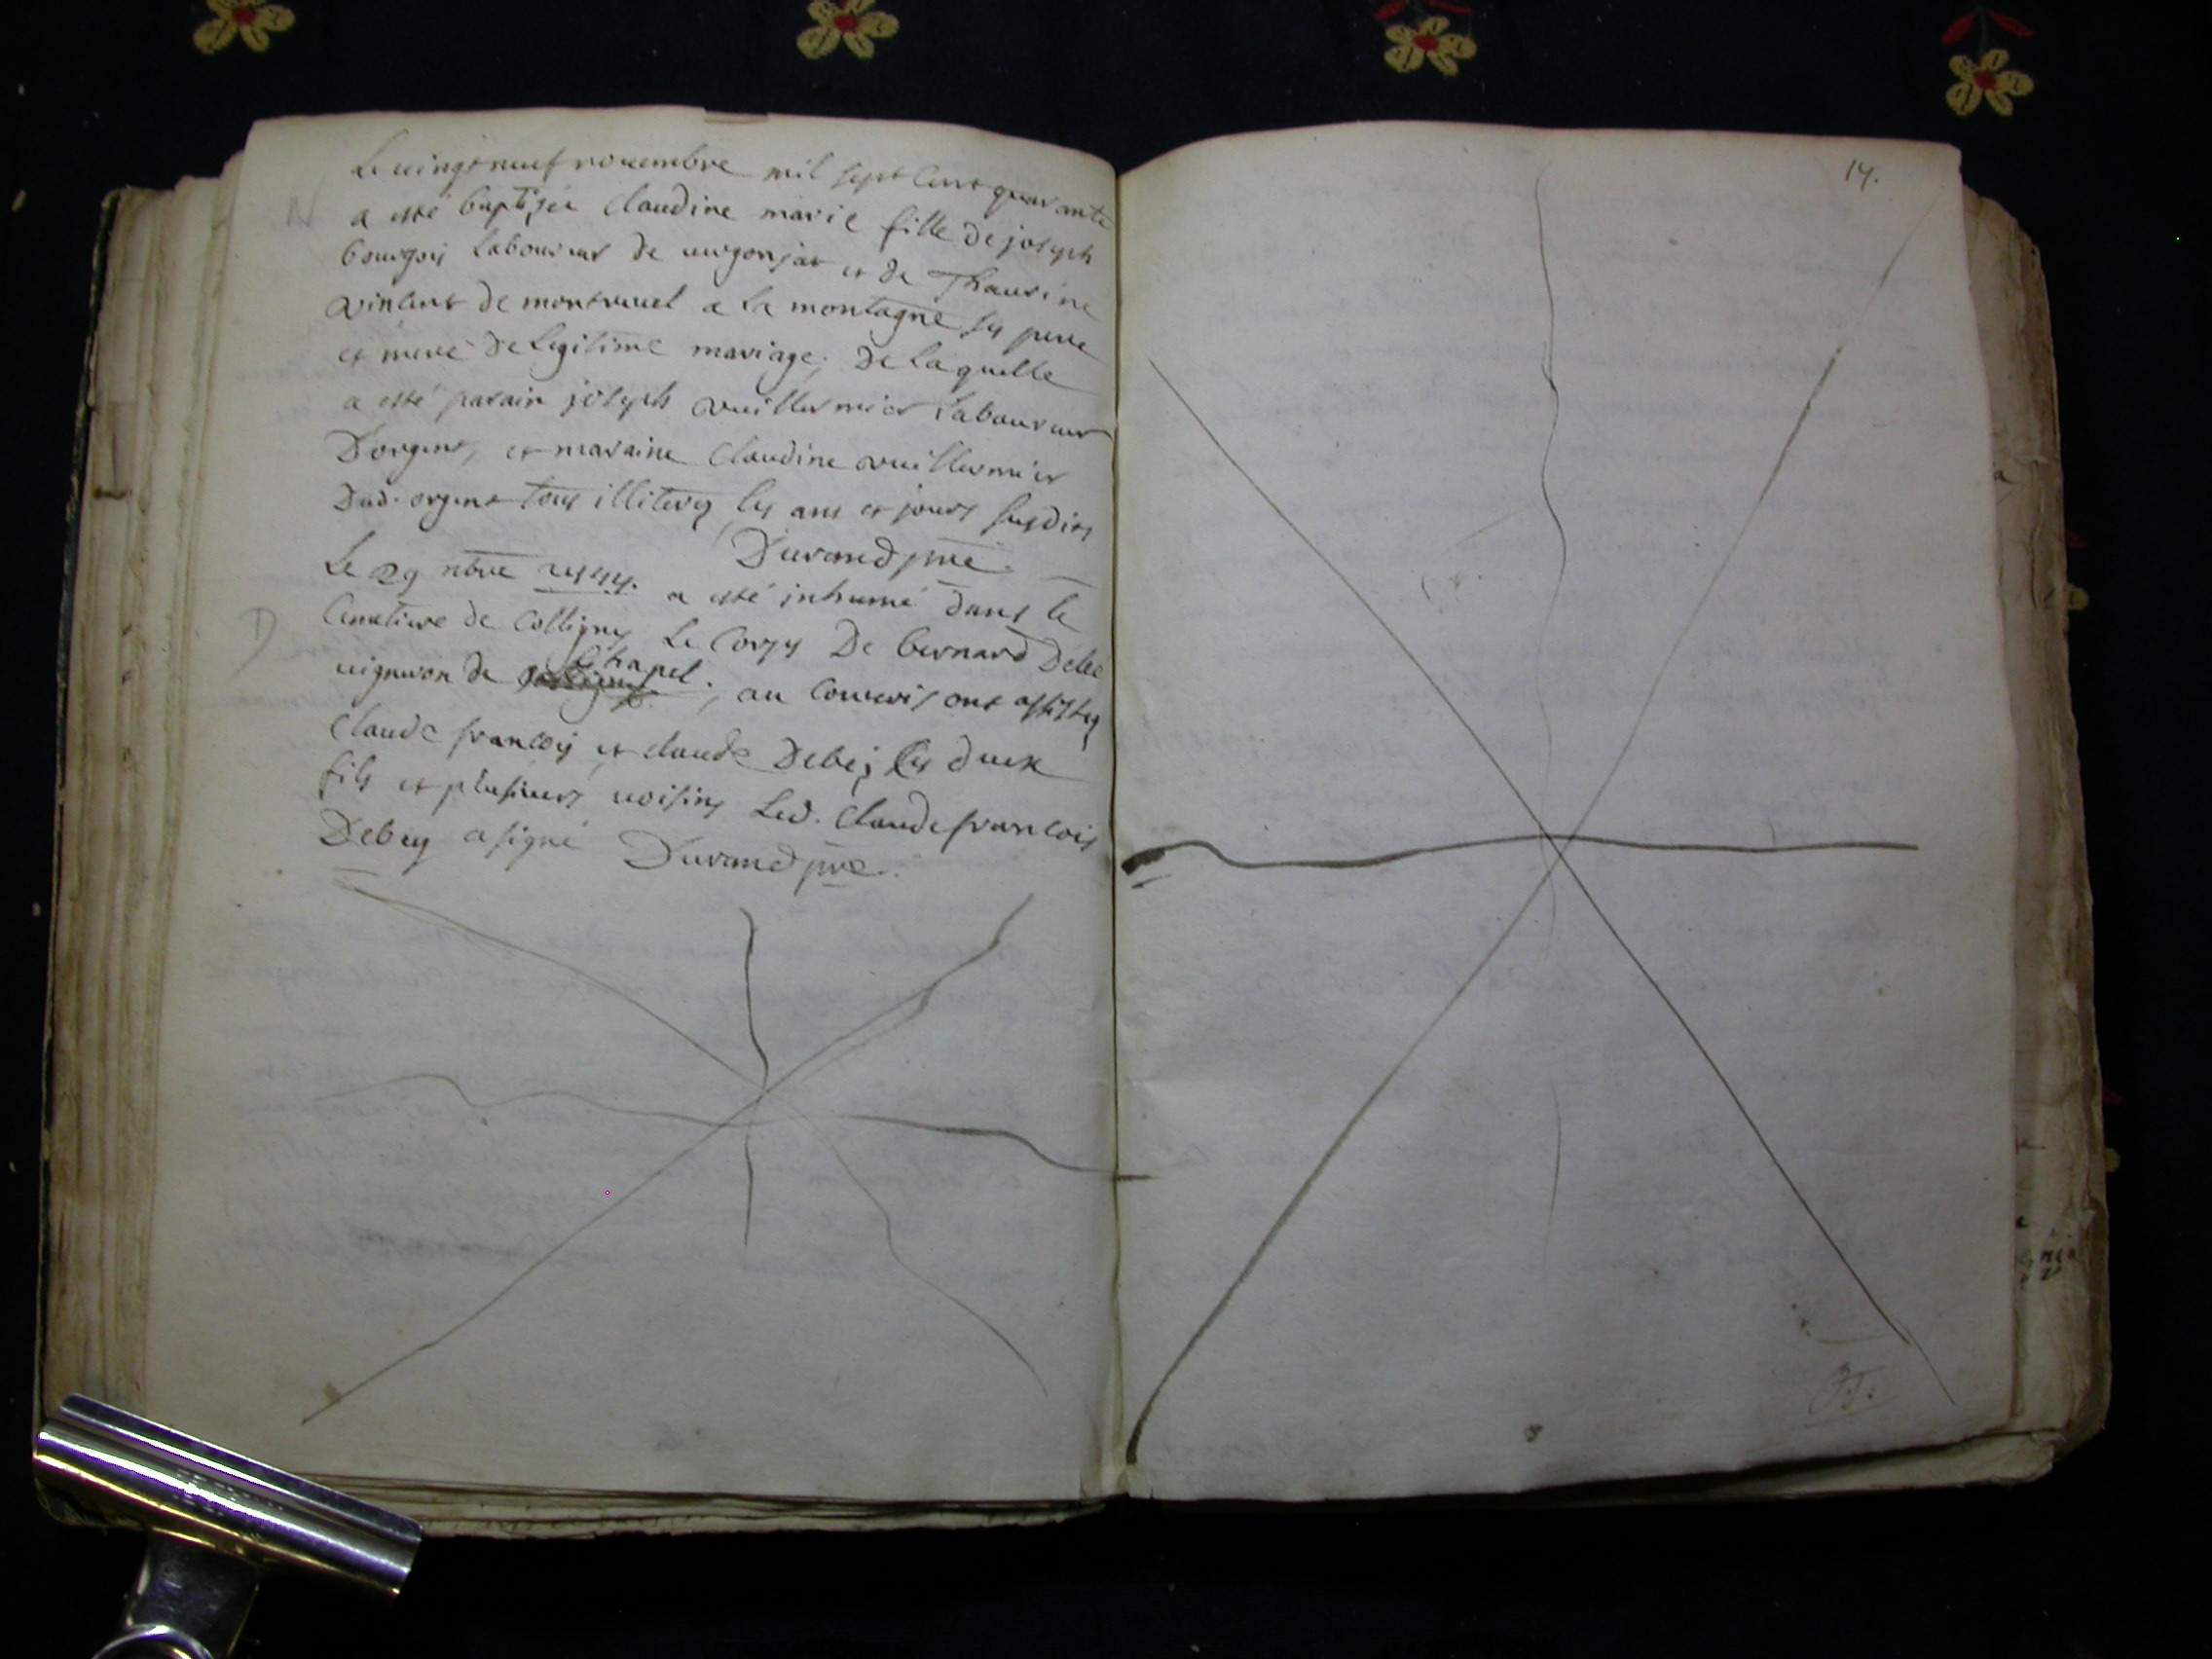 N
Le vingt neuf novembre mil sept cent quarante
a esté baptisée claudine marie fille de joseph
bourgois laboureur de et de Thaurine
vincent de montrevel a la montagne ses pere
et mere de legitime mariage, de laquelle
a esté parain joseph vuillermier laboureur
D'orgent, et maraine claudine vuillermier
Dud. orgent tous illiterez les ans et jours susdits
Durand ptre
D
Le 29 nbre a esté inhumé dans le
cemetiere de colligny le corps De bernard Debei
vigneron de chapel. , au convois ont assistez
claude françois et claude Debei ses deux
fils et plusieurs voisins led. claude françois
Debey a signé Durand ptre.
14.